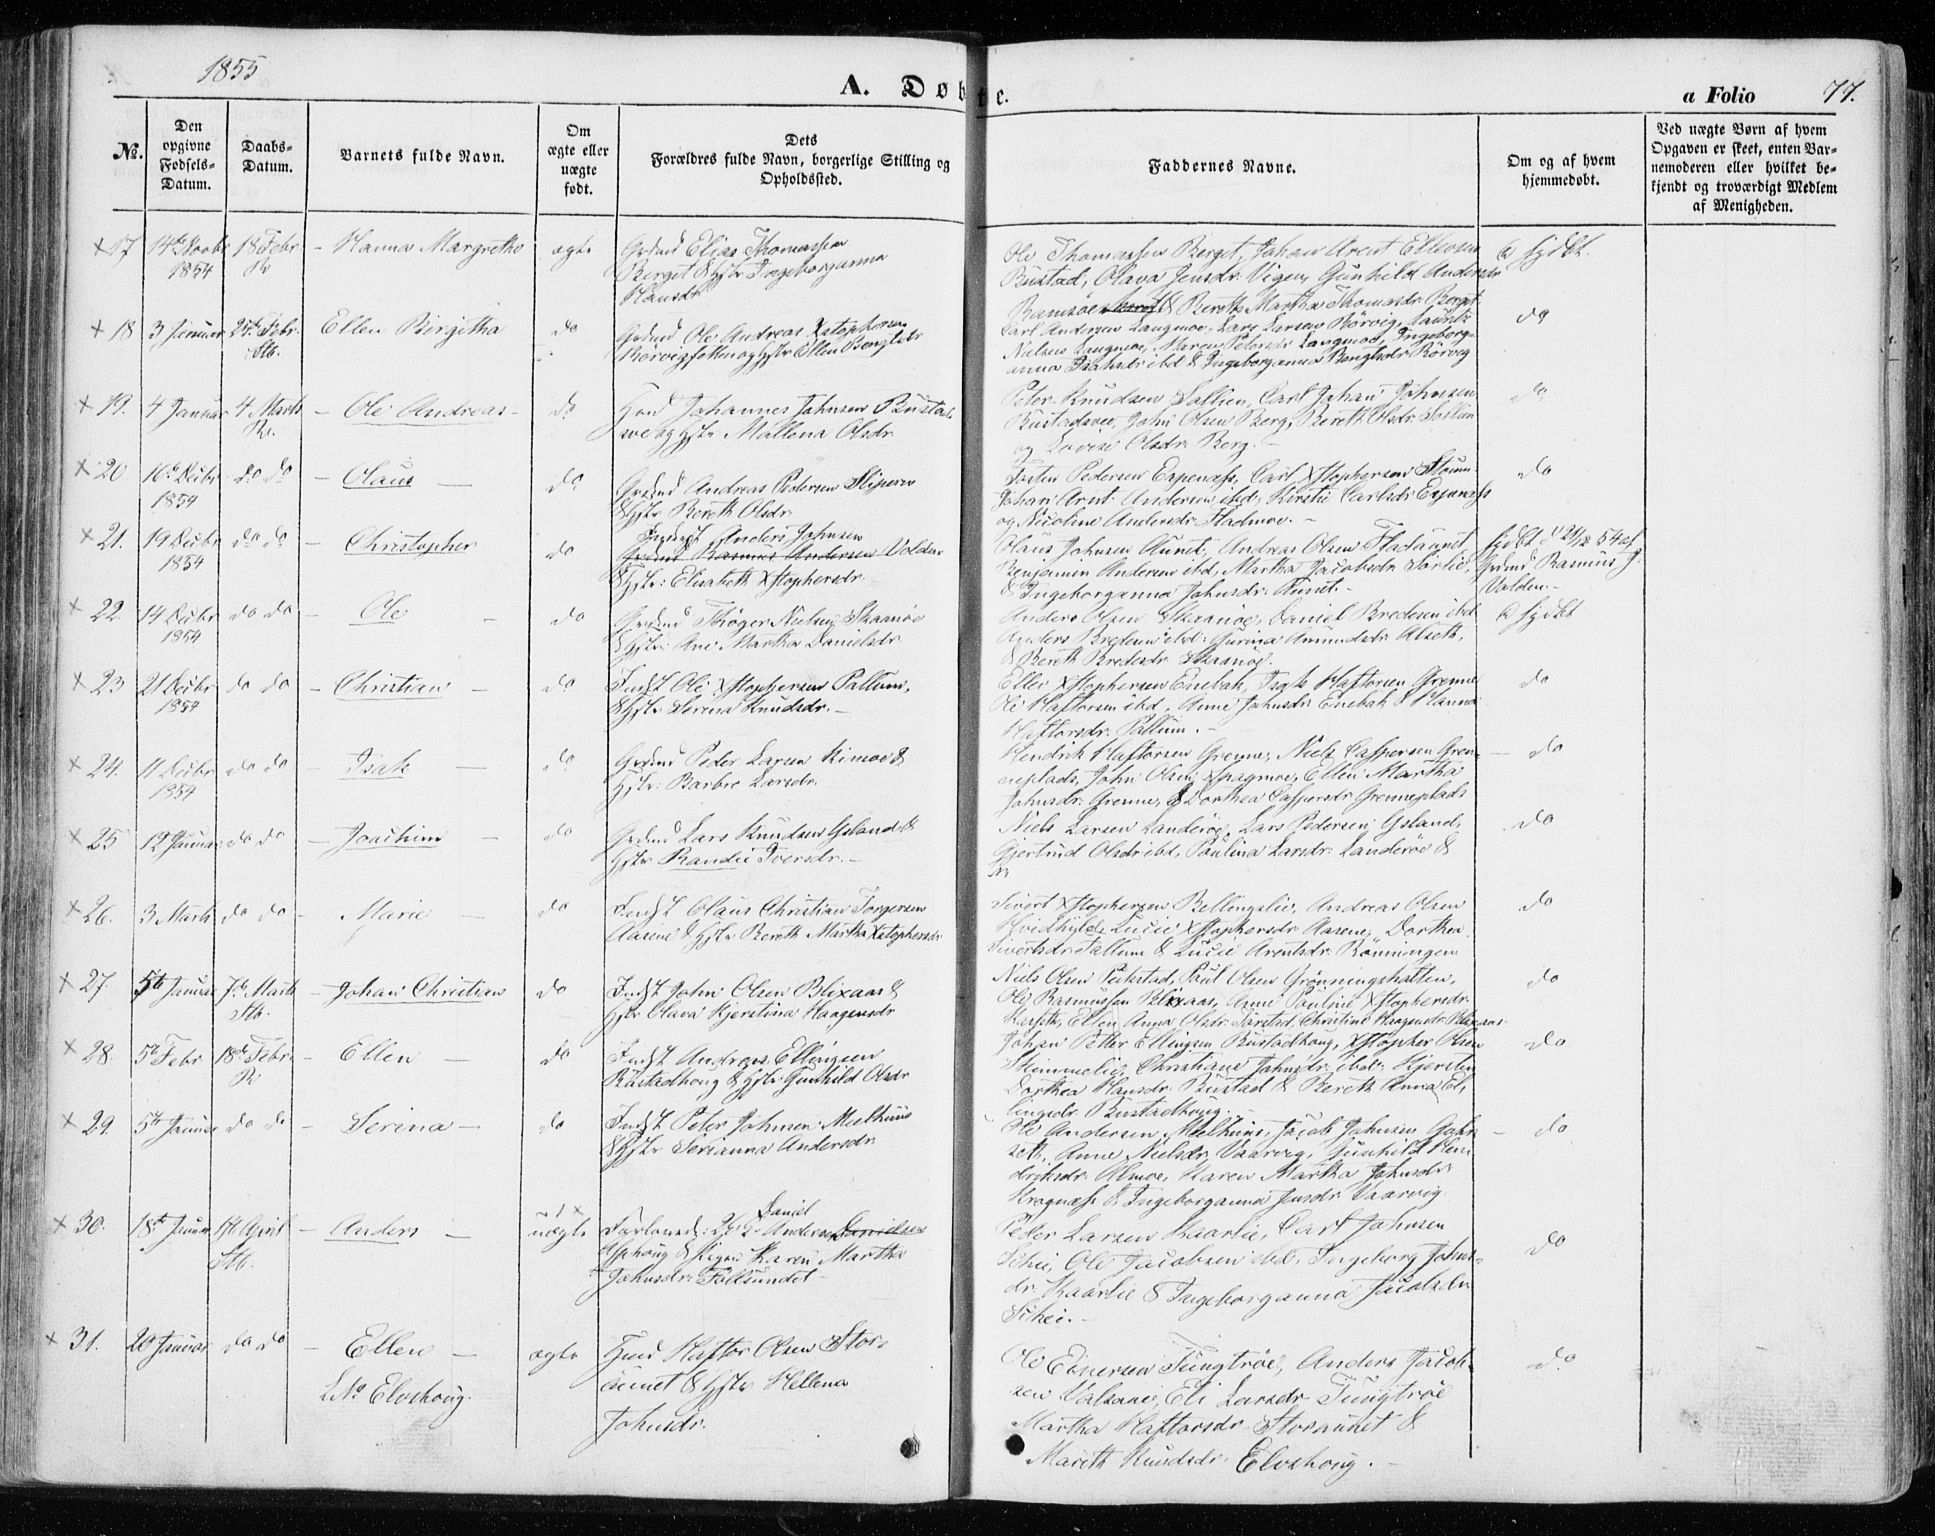 1855
A. Døbte.
a Folio 77.
No.
Den opgivne Fødsels-Datum.
Daabs-Datum.
Barnets fulde Navn.
Om ægte eller uægte født.
Dets Forældres fulde Navn, borgerlige Stilling og Opholdssted.
Faddernes Navne.
Om og af hvem hjemmedøbt.
Ved uægte Børn af hvem Opgaven er skeet, enten Barnemoderen eller hvilket bekjendt og troværdigt Medlem af Menigheden.
17 14de Novbr 1854 18 Febr R Hanna Margrethe ægte
Grdmd Elias Thomassen
Berget & Hstr Ingeborganna
Hansdr
Ole Thomassen Berget, Johan Arent Ellevsen
Bustad, Olava Jensdr Vigen, Gunhild Andersdr
Ramsøe & Bereth Martha Thomasdr Berget
hjdbt.
18 3 Januar 25de Febr. Stb. Ellen Birgitha do
Grdmd Ole Andreas Xstophersen
Rørvigfotten og Hstr Ellen Bengtsdr
Carl Andersen Langmoe, Lars Larsen Rørvig, Laurits
Nielsen Langmoe, Maren Petersdr Langmoe, Ingeborg-
anna Isaksdr ibd & Ingeborganna Bengtsdr Rørvig
do
19. 4 Januar 4 Marts R. Ole Andreas do
Johannes Johnsen Bustad-
Hstr Mallena Olsdr
Peter Knudsen Sallien, Carl Johan Johnsen
Bustadsvee, John Olsen Berg, Bereth Olsdr
og Lovise Olsdr Berg.
do
20 16de Decbr 1854 do do Olaus do
Grdmd Andreas Pedersen Slipern
& Hstr Bereth Olsdr
Pedersen Espenæss, Carl Xstophersen
Johan Arnt Andersen ibd, Kirstie Carlsdr Espenæss
og Nicoline Andersdr Stadmoe.
do
21. 19 Decbr 1854 do do Christopher do
Indst Anders Johnsen
Grdmd Rasmus Andersen Volden
& Hstr: Elisabeth Xstophersdr
Olaus Johnsen Aunet, Andreas Olsen Fladaunet
Benjamin Andersen ibd, Martha Jacobsdr Sørlie,
& Ingeborganna Johnsdr Aunet.
hjdbt d 21/12 54 af
Grdmd Rasmus J.
Volden.
22. 14 Decbr 1854 do do Ole do
Grdmd Thøger Nielsen Skaanøe
& Hstr: Ane Martha Danielsdr
Anders Olsen Skaanøe, Daniel Bredesen ibd
Anders Bredesen ibd, Gurina Amundsdr Alseth,
& Bereth Bredesdr Skaanøe.
hjdbt
23 21 Decbr 1854 do do Christian do
Indst Ole Xstophersen Pallum,
& Hstr Serina Knudsdr.
Ellev Xstophersen Enebak, Isak Haftorsen Grenne
Ole Haftorsen ibd, Anne Johnsdr Enebak & Hanna
Haftorsdr Pallum.
do
24. 11 Decbr 1854 do do Isak do
Grdmd Peder Larsen Rimoe &
Hstr: Barbro Larsdr
Hendrik Haftorsen Grenne, Niels Caspersen Gren-
neplads, John Olsen, Ellen Martha
Johnsdr Grenne, & Dorthea Caspersdr Grenneplads
do
25 12 Januar do do Joachim do
Grdmd Lars Knudsen Ysland &
Hstr Randie Iversdr.
Niels Larsen Landerøe, Lars Pedersen Ysland,
Gjertrud Olsdr ibd, Paulina Larsdr Landerøe &
do
26. 3 Marts do do Marie do
Indst Olaus Christian Torgersen
Aasene & Hstr Bereth Martha Xstophersdr
Sivert Xstophersen Bellingslie, Andreas Olsen
Hvidhyld, Lucie Xstophersdr Aasene, Dorthea
Sivertsdr Fallum & Lucie Arentsdr Rønningen
do
27. 5te Januar 7de Marts Stb. Johan Christian do
Indst John Olsen Blixaas &
Hstr Olava Kjerstina Haagensdr
Niels Olsen, Paul Olsen Grønningshatten,
Ole Rasmussen Blixaas, Anne Pauline Xstophersdr
Ellen Anna Olsdr, Christine Haagensdr Blixaas
do
28. 5te Febr 18de Febr R Ellen do
Indst Andreas Ellingsen
Bustadhoug & Hstr Gunhild Olsdr
Johan Petter Ellingsen Bustadhoug, Xstopher Olsen
Himmelie, Christiane Johnsdr ibd, Kjersten
Dorthea Hansdr Bustad & Bereth Anna El-
lingsdr Bustadhoug.
do
29. 5te Januar do do Serina do
Indst Peter Johnsen Meelhuus
& Hstr Serianna Andersdr
Ole Andersen Meelhuus, Jacob Johnsen
Anne Nielsdr Vaarvig, Gunhild Hen-
driksdr Olmoe, Karen Martha Johnsdr
Kragnæss & Ingeborganna Jensdr Vaarvig
do
30. 18de Januar April Stb. Anders uægte
Daniel
Andersen Danielsen
Asphoug & Pige Karen Martha
Johnsdr Follsundet
Peder Larsen Kaarlie, Carl Johnsen
Schei, Ole Jacobsen ibd, Ingeborg Johns-
dr Kaarlie & Ingeborganna Jacobsdr
Schei.
do
31. 20 Januar do do Ellen ægte
Elvehoug.
Haftor Olsen Stor-
aunet & Hstr Hellena
Johnsdr.
Ole Einersen Tungtrøe, Anders Jacob-
sen Valsaae, Eli Larsdr Tungtrøe
Martha Haftorsdr Storaunet &
Mareth Knudsdr Elvehoug.
do